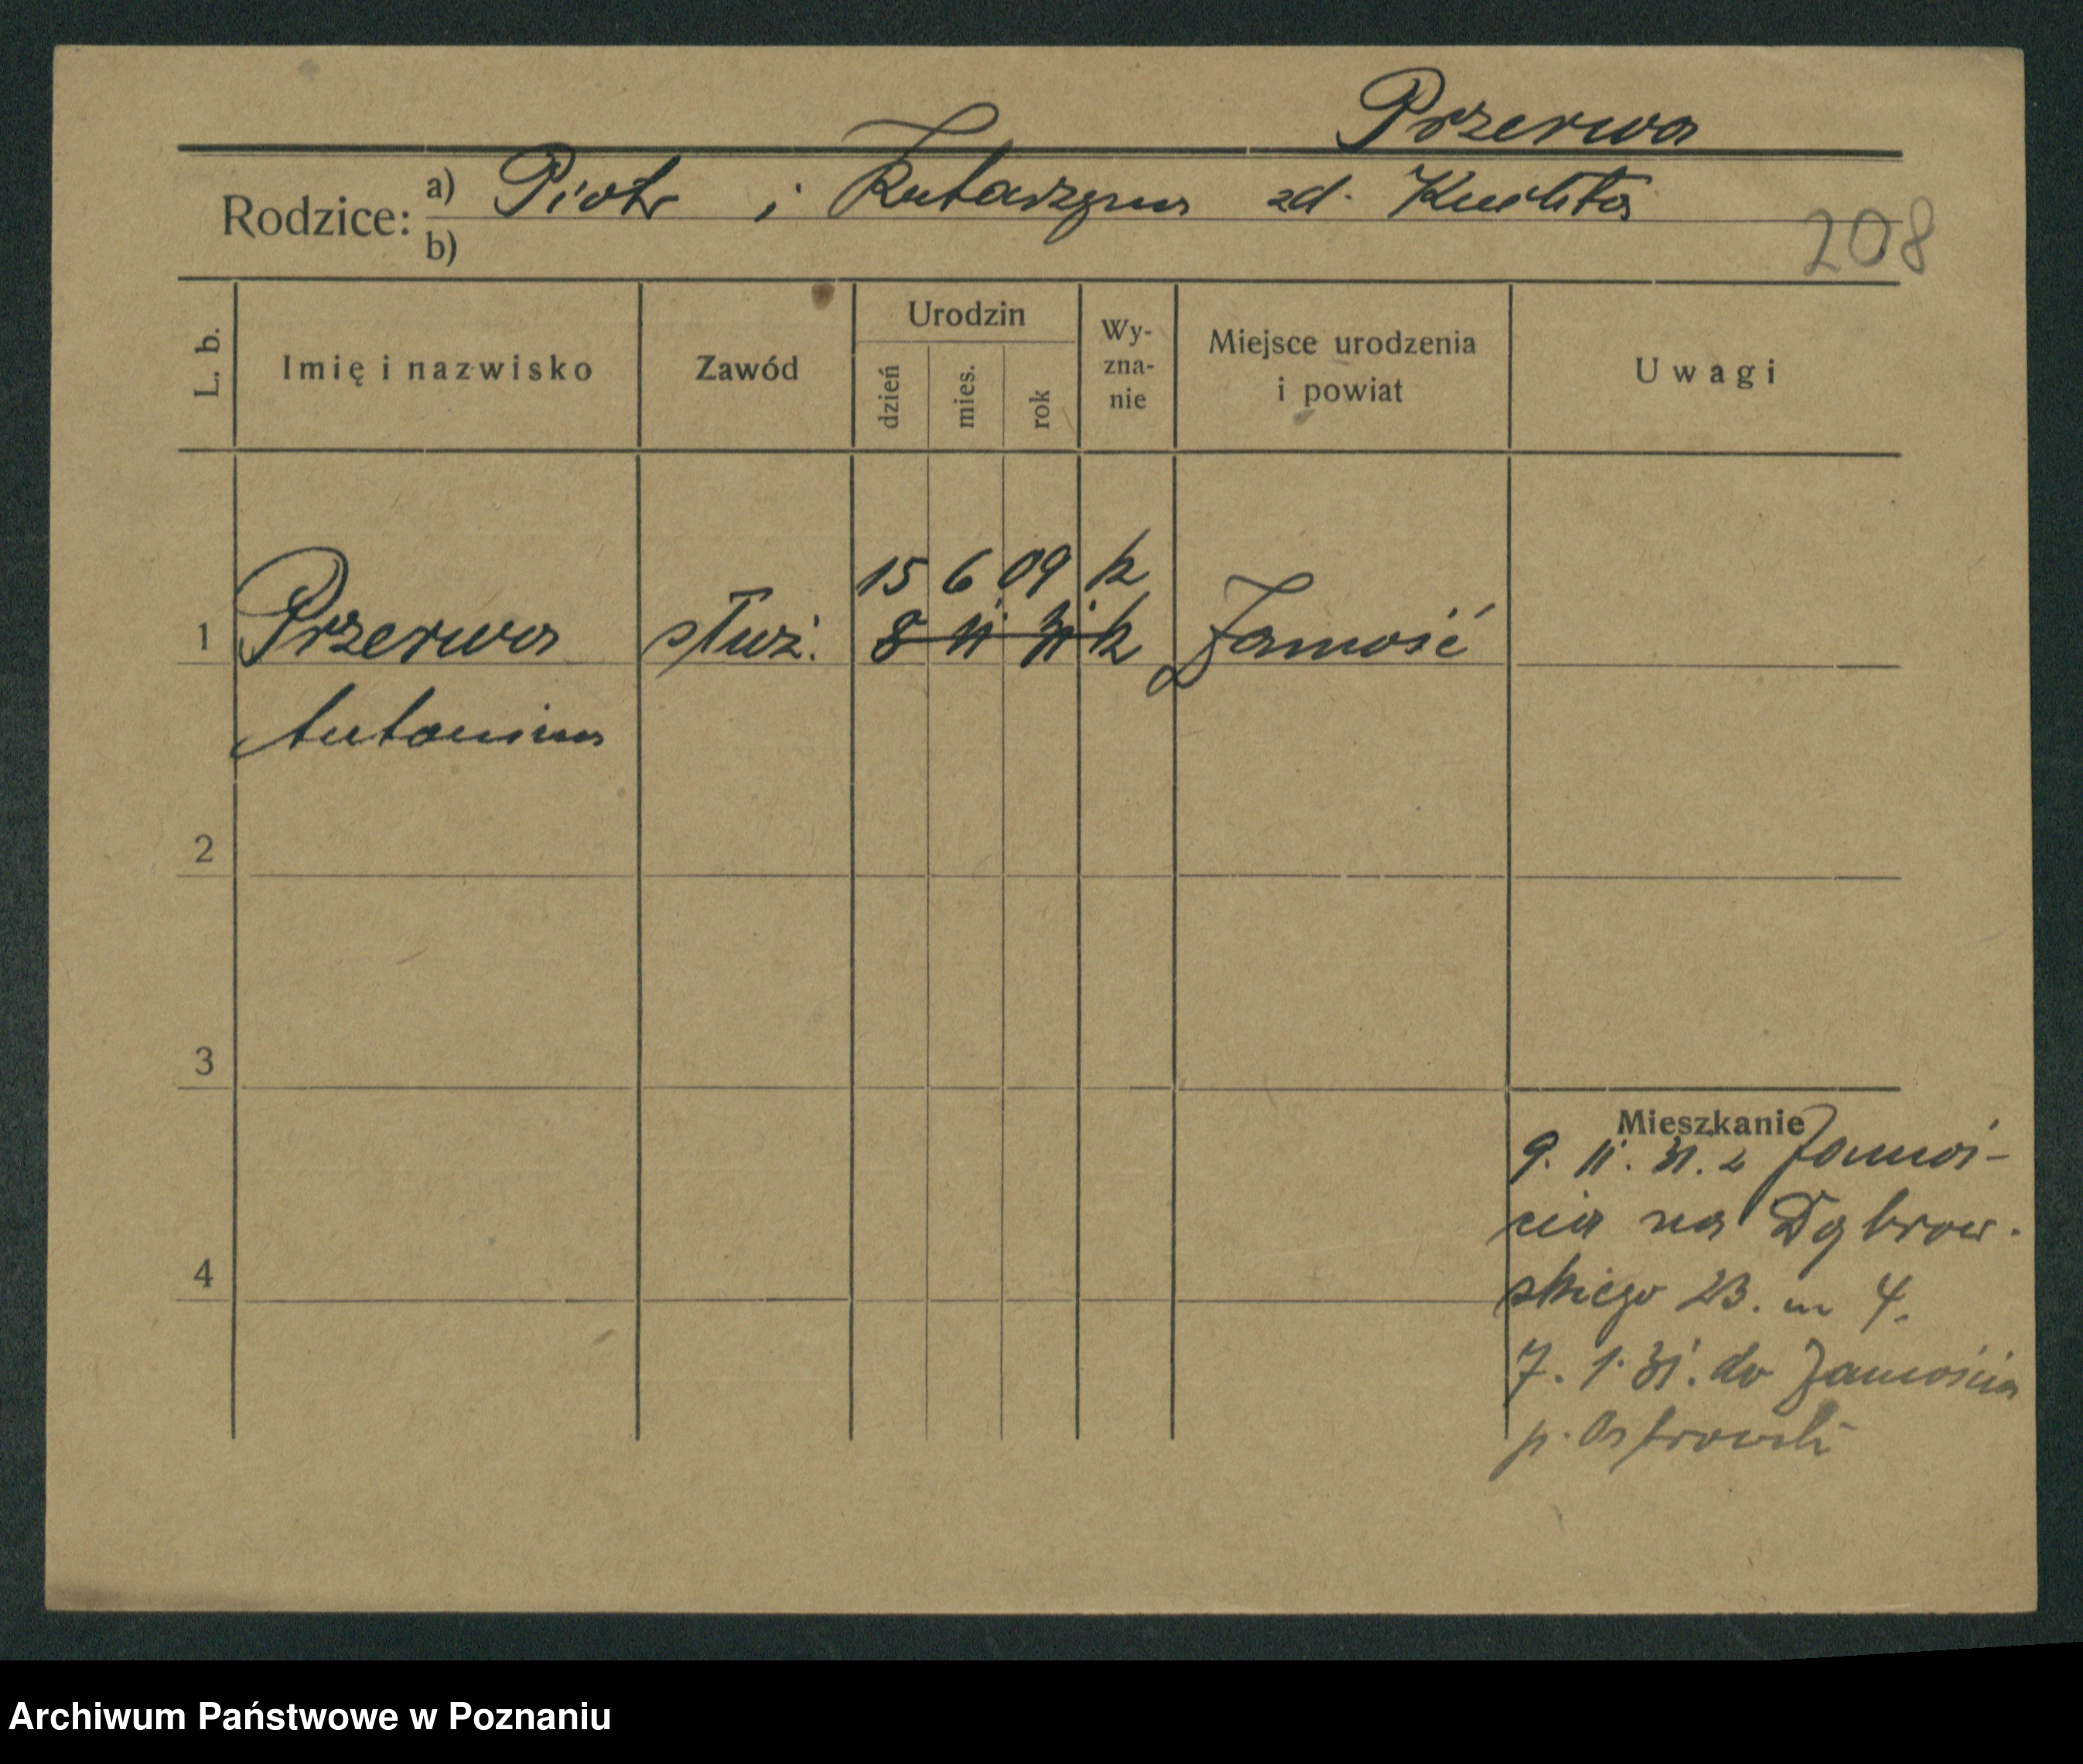 Przerwa
Rodzice: a) Piotr i Katarzyna zd.
b)
208
L. b.
Imię i nazwisko
Zawód
Urodzin
dzień
mies.
rok
Wy-
zna-
nie
Miejsce urodzenia
i powiat
Uwagi
15 6 09 k
1 Przerwa służ. 8 11 31 k Zamość
Antonina
2
3
4
Mieszkanie
9. 11. 31. z Zamoś-
cia na Dąbrow-
skiego 23. m 4.
7. 1. 31. do Zamościa
p. Ostrowski
Archiwum Państwowe w Poznaniu